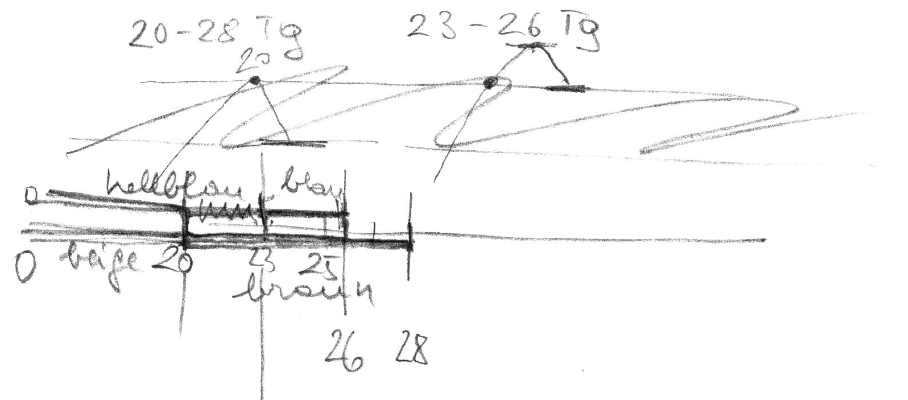 20-28 Tg
23-26 Tg
20
hellblau blau
0
0 beige 20 23 25
braun
26 28